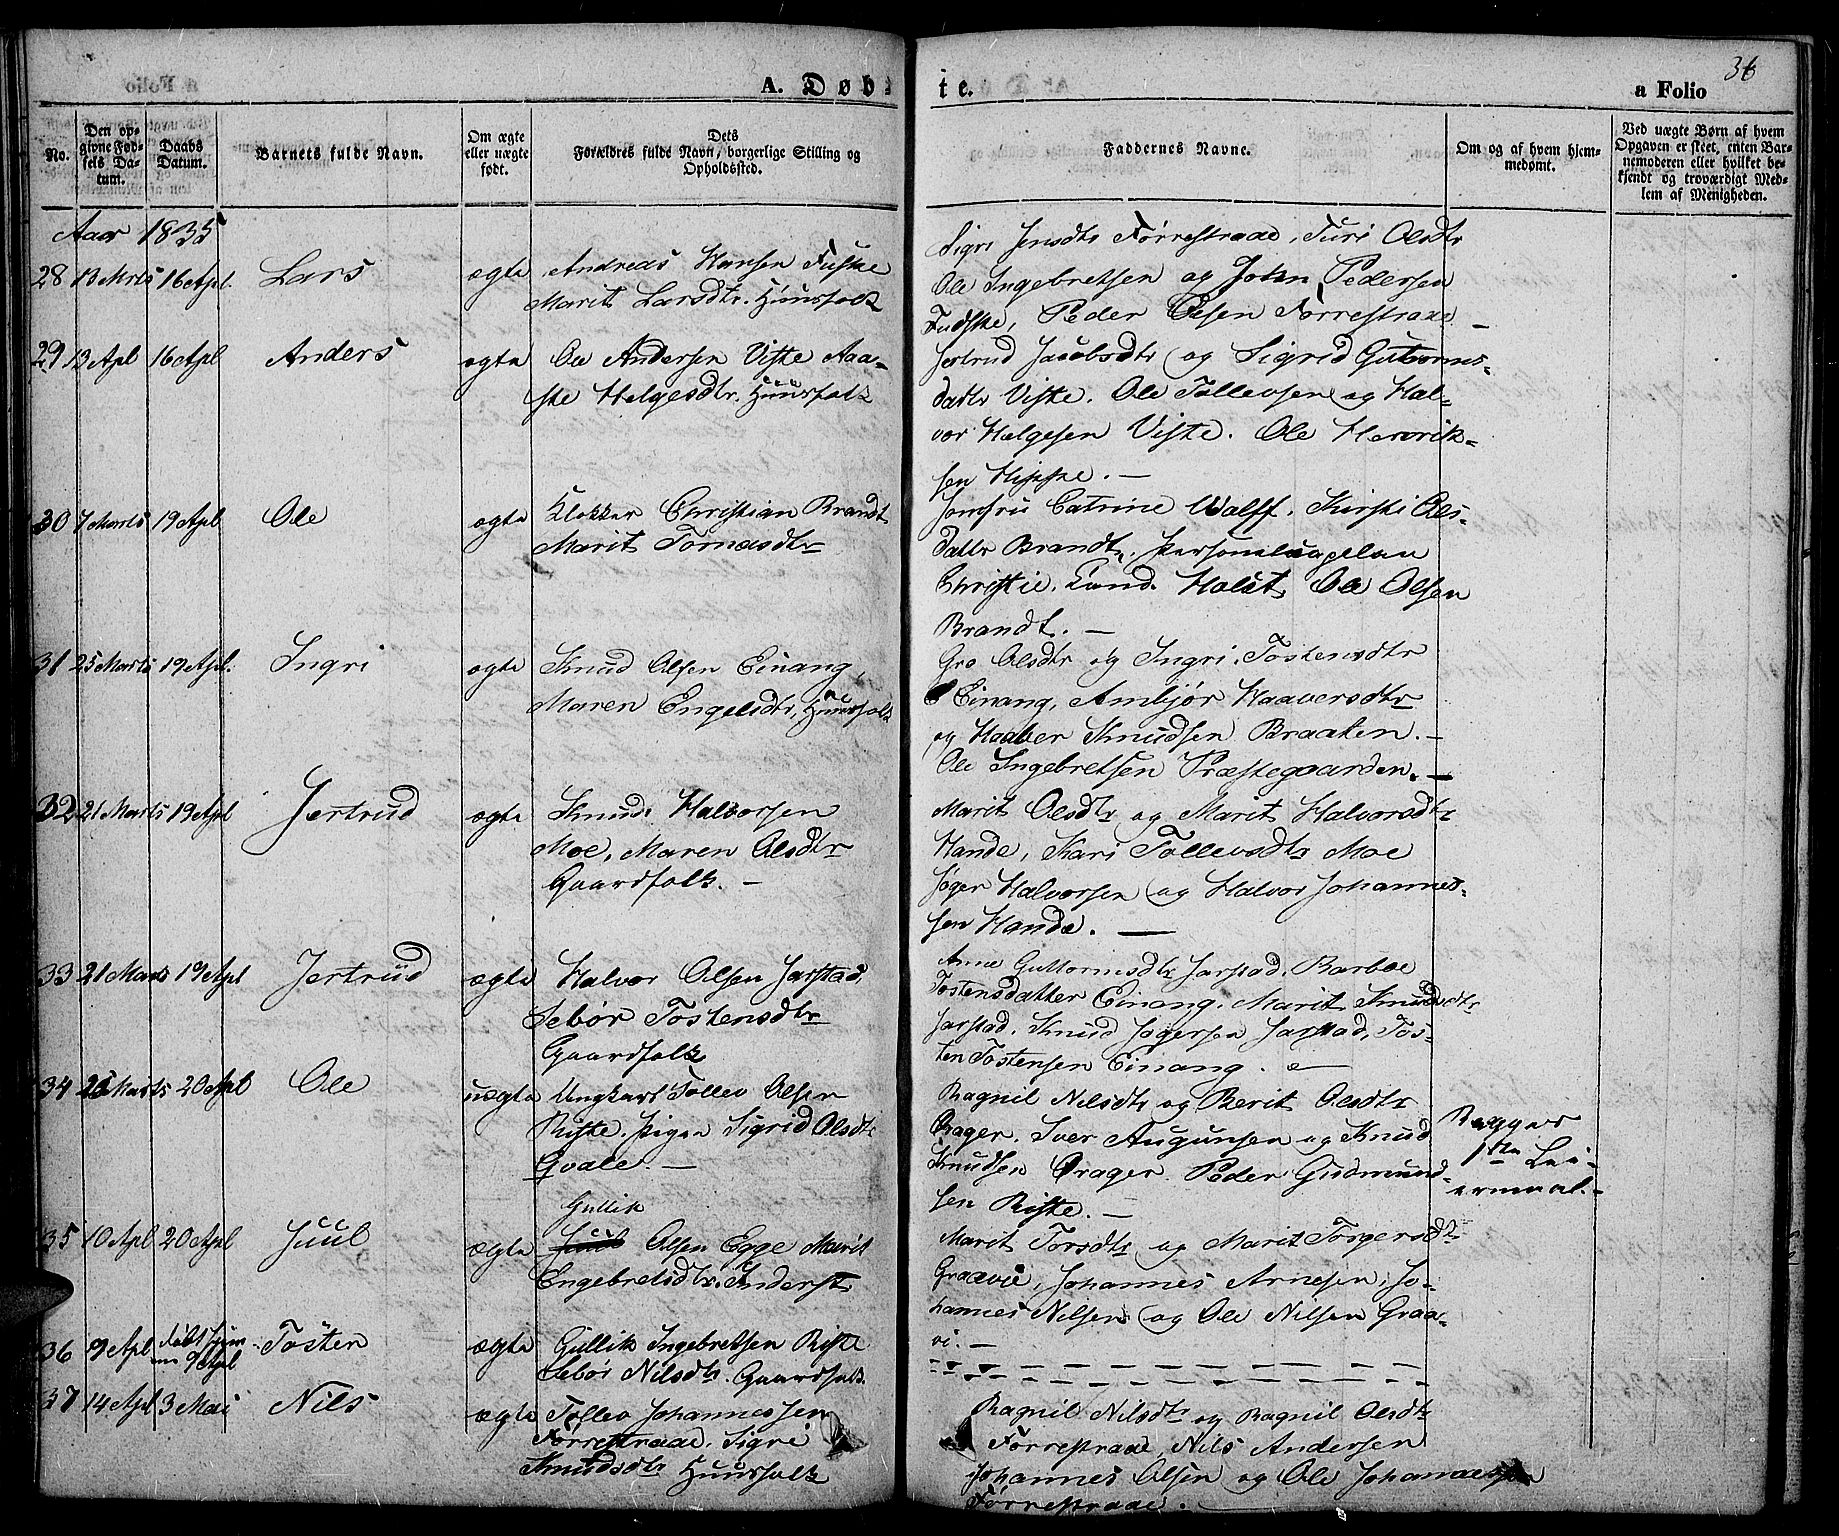 A. Døbte.
a Folio 36
No.
Den opgivne Fødsels Datum.
Daabs Datum.
Barnets fulde Navn.
Om ægte eller uægte født.
Dets Forældres fulde Navn, borgerlige Stilling og Opholdssted.
Faddernes Navne.
Om og af hvem hjemmedømt.
Ved uægte Børn af hvem Opgaven er skeet, enten Barnemoderen eller hvilket bekjendt og troværdigt Medlem af Menigheden.
Aar 1835
28 13 Mrts 16 Apl. Lars ægte Andreas Hansen Fuske
Marit Larsdtr. Huusfolk
Sigri Jensdtr Førrestraae, Turi Olsdtr
Ole Ingebretsen og John Pedersen
Fudske, Peder Olsen Førrestraae –
29 13 Apl 16 Apl Anders ægte Ole Andersen Viste Aaa-
ste Helgesdtr. Huusfolk
Jertrud Jacobsdtr og Sigrid Guttorms-
datr Viste. Ole Tollevsen og Hal-
vor Helgesen Viste. Ole Henrik-
sen Hippe. –
30 7 Marts 19 Apl Ole ægte Klokker Christian Brandt
Marit Tomasdtr
Jomfru Catrine Wolff. Kirsti Ols-
datr Brandt, Personelcapelan
Christie. Land. Holst, Ole Olsen
Brandt. –
31 25 Marts 19 Apl. Ingri ægte Knud Olsen Einang,
Maren Engelsdtr, Huusfolk
Gro Olsdtr og Ingri Tostensdtr
Einang, Ambjør Haaversdtr
og Haaver Knudsen Braaten. –
Ole Ingebretsen Præstegaarden. –
32 21 Marts 19 Apl Jertrud ægte Knud Halvorsen
Moe, Maren Olsdtr
Gaardfolk. –
Marit Olsdtr og Marit Halvorsdtr
Hande, Kari Tollevsdtr Moe
Jøger Halvorsen og Halvor Johannes-
sen Hande. –
33 21 Marts 19 Apl Jertrud ægte Halvor Olsen Jarstad,
Sebør Tostensdtr
Gaardfolk
Anne Guttormsdtr Jarstad. Barboe
Tostensdatter Einang, Marit Knudsdtr
Jarstad. Knud Jogersen Jarstad, Tos-
ten Tostensen Einang. –
34 Marts 20 Apl Ole uægte Ungkarl Tollev Olsen
Riste. Pigen Sigrid Olsdtr
Qvale. –
Ragnil Nilsdtr og Berit Olsdtr
Iver Augunsen og Knud
Knudsen Drager. Peder Gudmund-
sen Riste. –
Begges
1ste Lei-
ermaal. –
35 10 Apl 20 Apl Juul ægte Gullik
Juul Olsen Egge Marit
Engebretsdtr. Inderst
Marit Torsdtr og Marit Torgersdtr
Graavie, Johannes Arnesen, Jo-
hannes Nilsen og Ole Nilsen Graa-
vi. –
36 9 Apl 9 Apl Tosten ægte Gullik Ingebretsen Riste
Sebør Nilsdtr. Gaardfolk.
37 14 Apl 3 Mai Nils ægte Tollev Johannessen
Førrestraae. Sigri
Knudsdtr Huusfolk
Ragnil Nilsdtr og Ragnil Olsdtr
Førrestraae, Nils Andersen
Johannes Olsen og Ole Johannessen
Førrestraae.